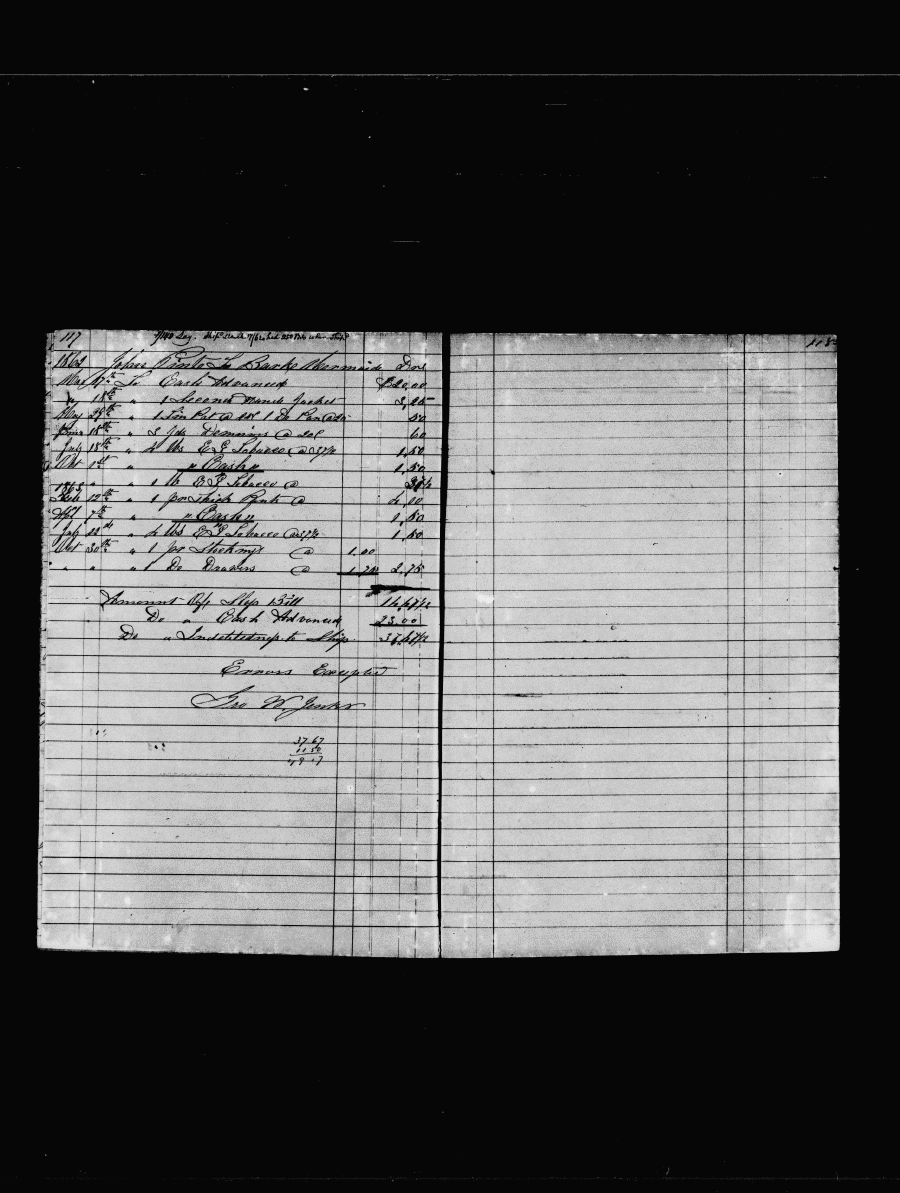 117
118
1862 John Pinto To Bark Mermaid Drs
May 17th To Cash Advanced $20,00
" 18th " 1 Second Hand Jacket 3,25
May 29th " 1 Tin Pot @ 1 Do Pan @ 50
June 18th " 3 Yds Demmins @ 20c 60
July 18th " 4 lbs E G Tobacco @ 37½ 1,50
Oct 1st " " Cash " 1,50
" " " 1 lb E G Tobacco @ 37½
1863
Feb 12th " 1 pr Thick Pants @ 4,00
7th " " Cash " 1,50
July " 4 lbs E G Tobacco @ 37½ 1,50
Oct 30th " 1 pr Stockings @ 1.00
" " " 1 Do Drawers @ 1.75 2,75
Amount of Slop Bill 14,67½
Do " Cash Advanced 23.00
Do " Indebtedness to Ship 37,67½
Errors Excepted
Geo W. Jenks
37.67
11 50
49 17